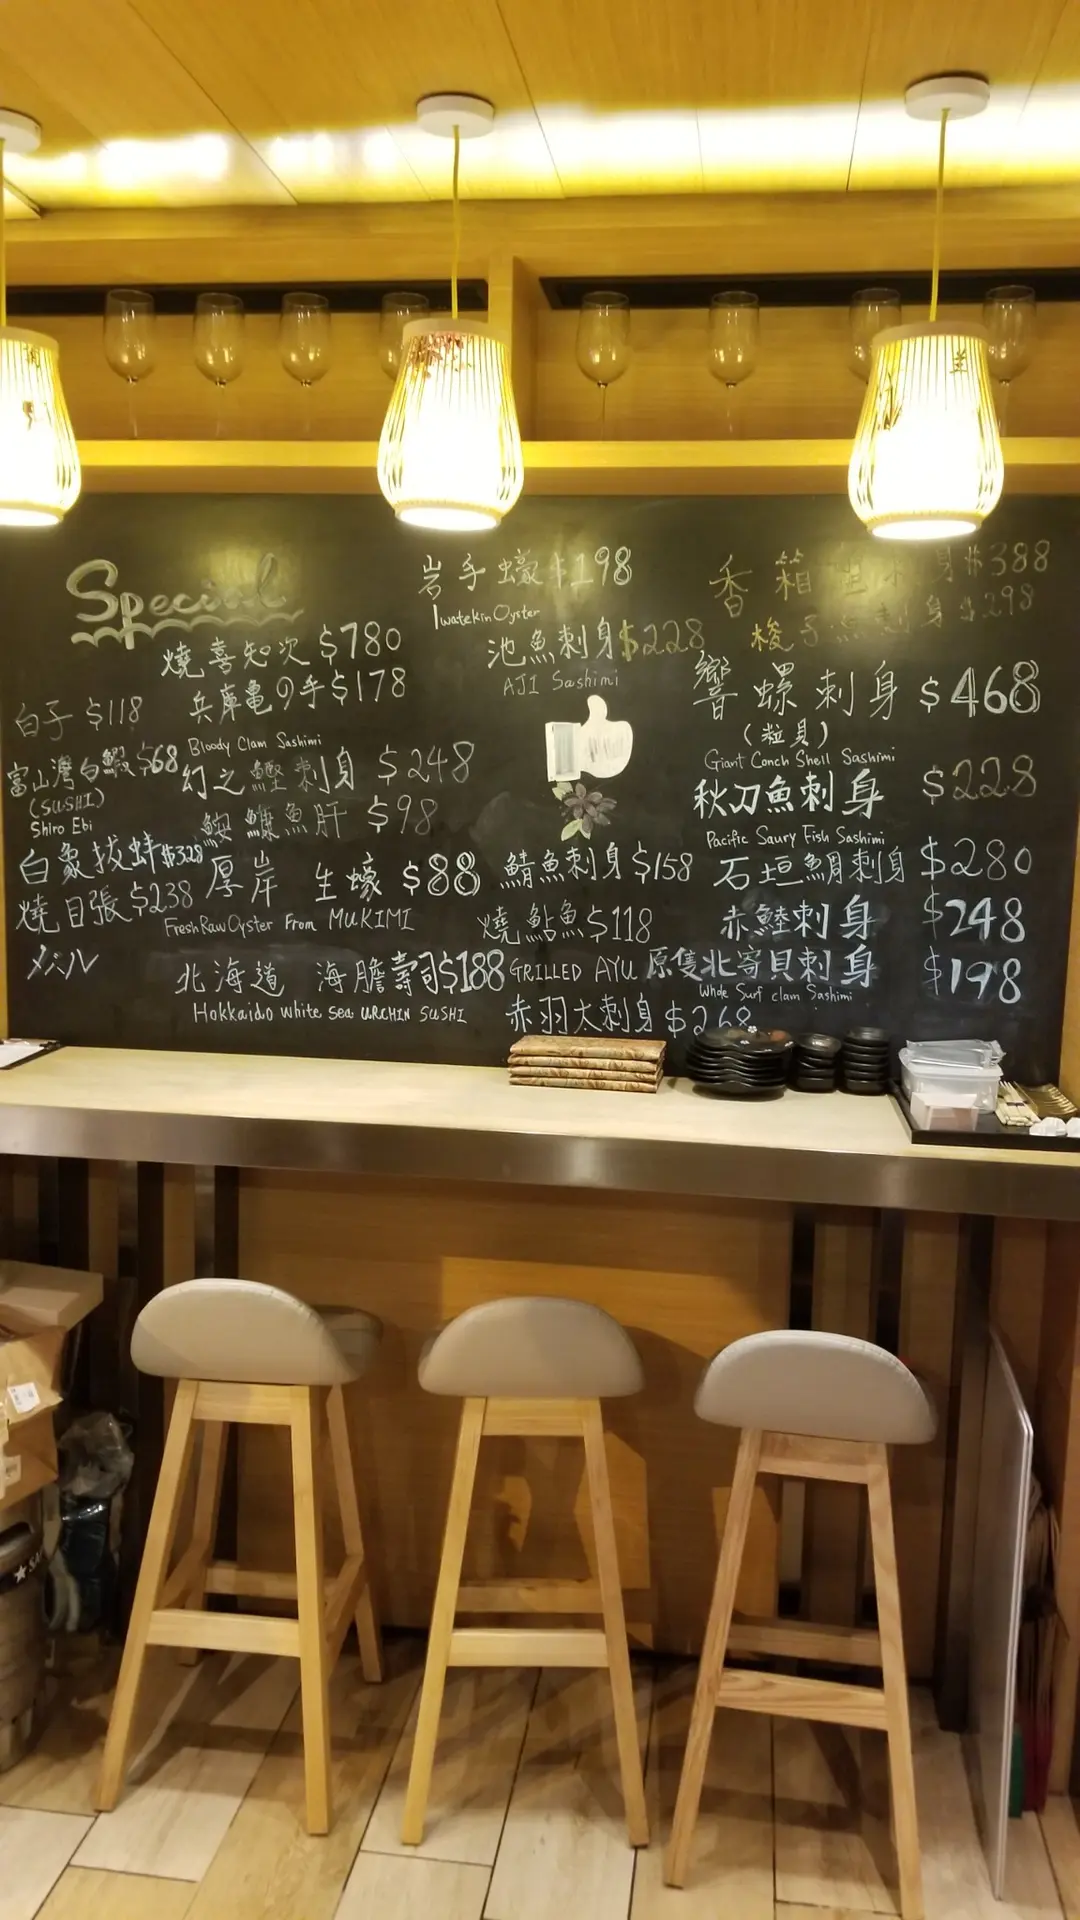 Special
燒喜知次 $780
兵庫亀の手 $178
白子 $118
Bloody Clam Sashimi
富山灣白蝦 $68
(SUSHI)
Shiro Ebi
幻之鰹刺身 $248
鮟鱇魚肝 $98
白象拔蚌 $328
燒目張 $238
メバル
厚岸 生蠔 $88
Fresh Raw Oyster From MUKIMI
北海道 海膽壽司 $188
Hokkaido white sea URCHIN SUSHI
岩手蠔 $198
Iwatekin Oyster
池魚刺身 $228
AJI Sashimi
鯖魚刺身 $158
燒鮎魚 $118
GRILLED AYU
赤羽太刺身 $268
香箱 刺身 $388
梭子魚刺身 $298
響螺刺身 $468
(粒貝)
Giant Conch Shell Sashimi
秋刀魚刺身 $228
Pacific Saury Fish Sashimi
石垣鯛刺身 $280
赤鯥刺身 $248
原隻北寄貝刺身 $198
Whole Surf clam Sashimi